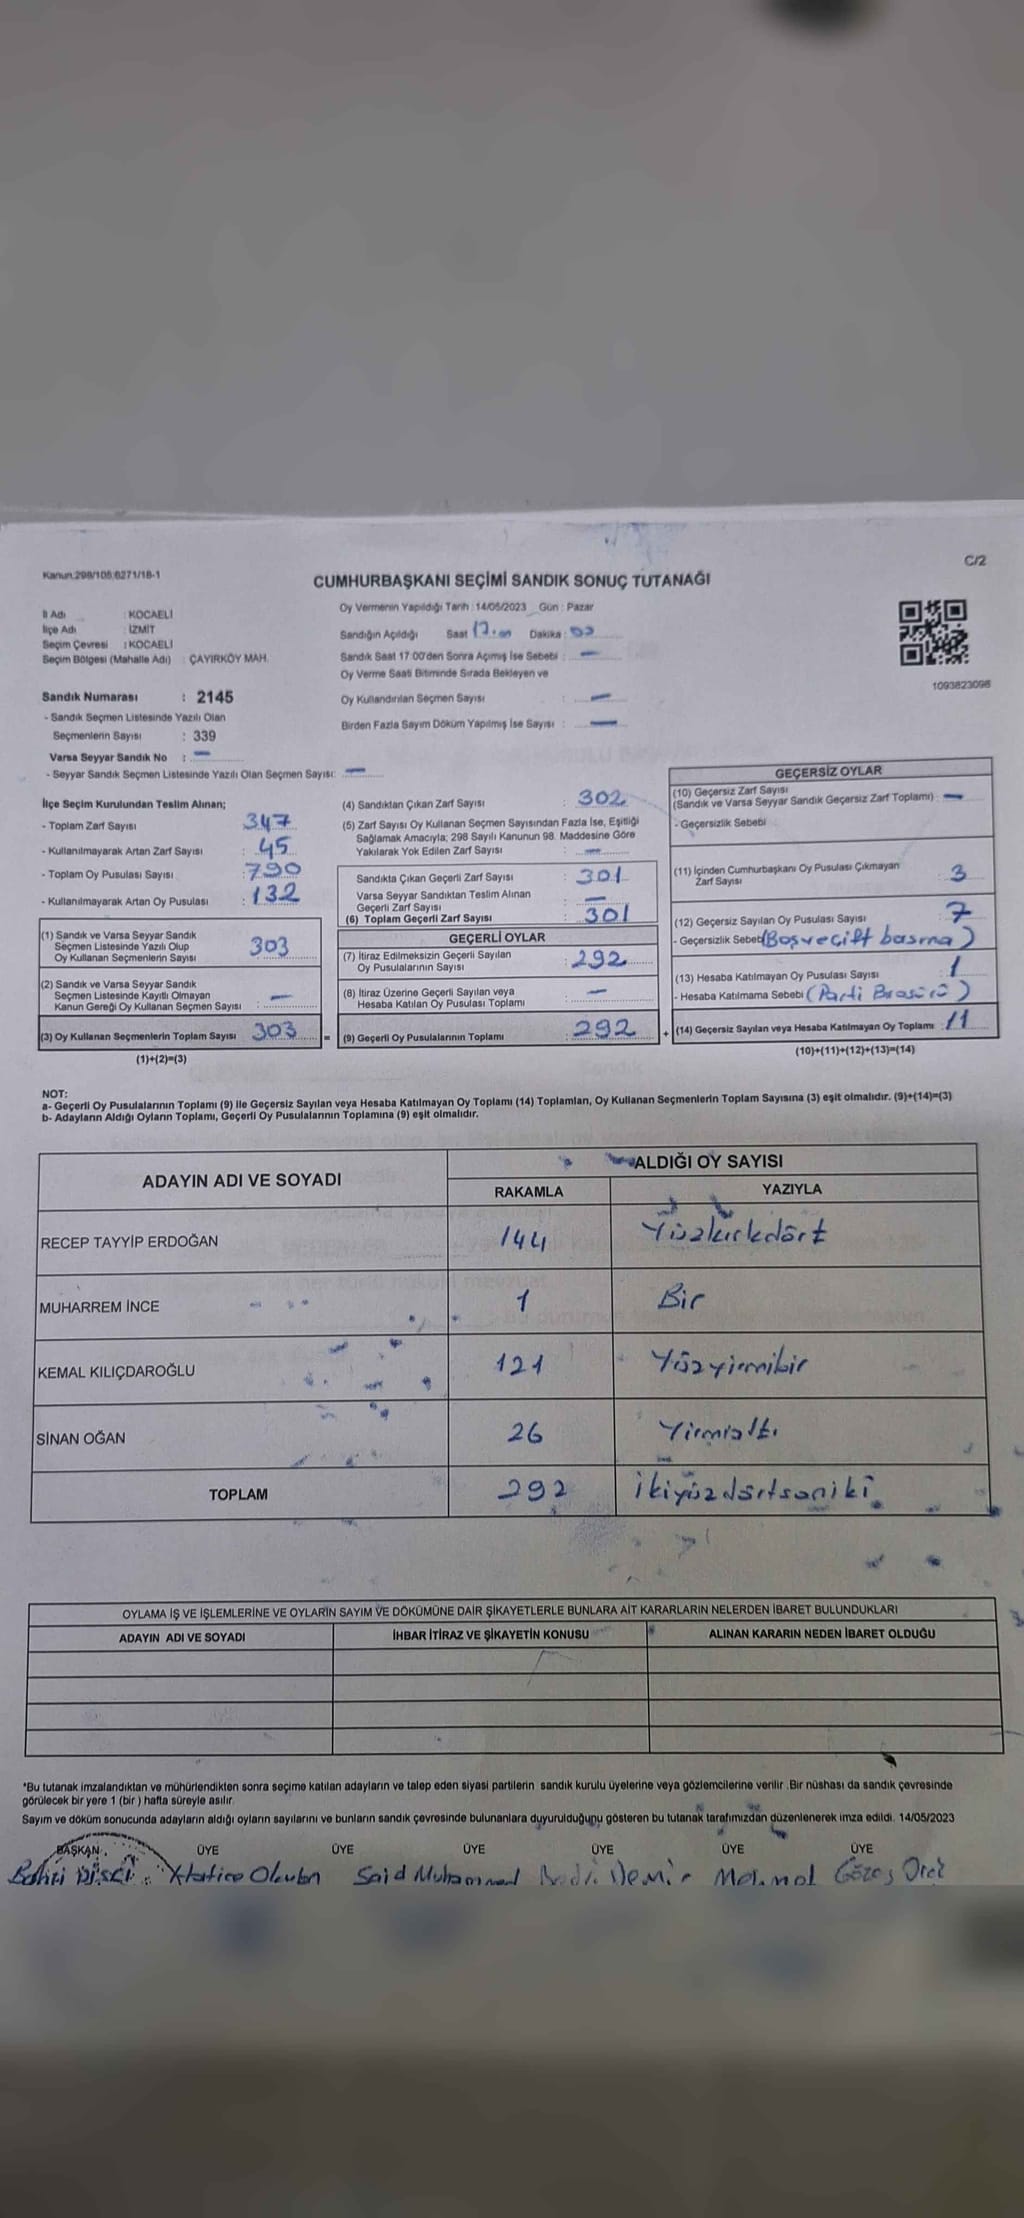 C/2
Kanun:298/105;6271/18-1
CUMHURBAŞKANI SEÇİMİ SANDIK SONUÇ TUTANAĞI
İl Adı : KOCAELİ
İlçe Adı : İZMİT
Seçim Çevresi : KOCAELİ
Seçim Bölgesi (Mahalle Adı) : ÇAYIRKÖY MAH.
Oy Vermenin Yapıldığı Tarih : 14/05/2023 Gün : Pazar
Sandığın Açıldığı Saat Dakika :
Sandık Saat 17:00'den Sonra Açımış İse Sebebi : —
Oy Verme Saati Bitiminde Sırada Bekleyen ve
Oy Kullandırılan Seçmen Sayısı : —
Birden Fazla Sayım Döküm Yapılmış İse Sayısı : —
1093823098
Sandık Numarası : 2145
- Sandık Seçmen Listesinde Yazılı Olan
Seçmenlerin Sayısı : 339
Varsa Seyyar Sandık No : —
- Seyyar Sandık Seçmen Listesinde Yazılı Olan Seçmen Sayısı: —
İlçe Seçim Kurulundan Teslim Alınan;
- Toplam Zarf Sayısı : 347
- Kullanılmayarak Artan Zarf Sayısı : 45
- Toplam Oy Pusulası Sayısı : 790
- Kullanılmayarak Artan Oy Pusulası : 132
(1) Sandık ve Varsa Seyyar Sandık
Seçmen Listesinde Yazılı Olup
Oy Kullanan Seçmenlerin Sayısı : 303
(2) Sandık ve Varsa Seyyar Sandık
Seçmen Listesinde Kayıtlı Olmayan
Kanun Gereği Oy Kullanan Seçmen Sayısı : —
(3) Oy Kullanan Seçmenlerin Toplam Sayısı : 303 =
(1)+(2)=(3)
(4) Sandıktan Çıkan Zarf Sayısı : 302
(5) Zarf Sayısı Oy Kullanan Seçmen Sayısından Fazla İse, Eşitliği
Sağlamak Amacıyla; 298 Sayılı Kanunun 98. Maddesine Göre
Yakılarak Yok Edilen Zarf Sayısı : —
Sandıkta Çıkan Geçerli Zarf Sayısı : 301
Varsa Seyyar Sandıktan Teslim Alınan
Geçerli Zarf Sayısı : —
(6) Toplam Geçerli Zarf Sayısı : 301
GEÇERLİ OYLAR
(7) İtiraz Edilmeksizin Geçerli Sayılan
Oy Pusulalarının Sayısı : 292
(8) İtiraz Üzerine Geçerli Sayılan veya
Hesaba Katılan Oy Pusulası Toplamı : —
(9) Geçerli Oy Pusulalarının Toplamı : 292 +
GEÇERSİZ OYLAR
(10) Geçersiz Zarf Sayısı
(Sandık ve Varsa Seyyar Sandık Geçersiz Zarf Toplamı) : —
- Geçersizlik Sebebi
(11) İçinden Cumhurbaşkanı Oy Pusulası Çıkmayan
Zarf Sayısı : 3
(12) Geçersiz Sayılan Oy Pusulası Sayısı : 7
- Geçersizlik Sebebi (Boş ve çift basma)
(13) Hesaba Katılmayan Oy Pusulası Sayısı : 1
- Hesaba Katılmama Sebebi (Parti Broşürü)
(14) Geçersiz Sayılan veya Hesaba Katılmayan Oy Toplamı : 11
(10)+(11)+(12)+(13)=(14)
NOT:
a- Geçerli Oy Pusulalarının Toplamı (9) ile Geçersiz Sayılan veya Hesaba Katılmayan Oy Toplamı (14) Toplamları, Oy Kullanan Seçmenlerin Toplam Sayısına (3) eşit olmalıdır. (9)+(14)=(3)
b- Adayların Aldığı Oyların Toplamı, Geçerli Oy Pusulalarının Toplamına (9) eşit olmalıdır.
ADAYIN ADI VE SOYADI ALDIĞI OY SAYISI
RAKAMLA YAZIYLA
RECEP TAYYİP ERDOĞAN 144 Yüzkırkdört
MUHARREM İNCE 1 Bir
KEMAL KILIÇDAROĞLU 121 Yüzyirmibir
SİNAN OĞAN 26 Yirmialtı
TOPLAM 292
OYLAMA İŞ VE İŞLEMLERİNE VE OYLARIN SAYIM VE DÖKÜMÜNE DAİR ŞİKAYETLERLE BUNLARA AİT KARARLARIN NELERDEN İBARET BULUNDUKLARI
ADAYIN ADI VE SOYADI İHBAR İTİRAZ VE ŞİKAYETİN KONUSU ALINAN KARARIN NEDEN İBARET OLDUĞU
*Bu tutanak imzalandıktan ve mühürlendikten sonra seçime katılan adayların ve talep eden siyasi partilerin sandık kurulu üyelerine veya gözlemcilerine verilir .Bir nüshası da sandık çevresinde
görülecek bir yere 1 (bir ) hafta süreyle asılır.
Sayım ve döküm sonucunda adayların aldığı oyların sayılarını ve bunların sandık çevresinde bulunanlara duyurulduğunu gösteren bu tutanak tarafımızdan düzenlenerek imza edildi. 14/05/2023
BAŞKAN ÜYE ÜYE ÜYE ÜYE ÜYE ÜYE
Said Muhammed